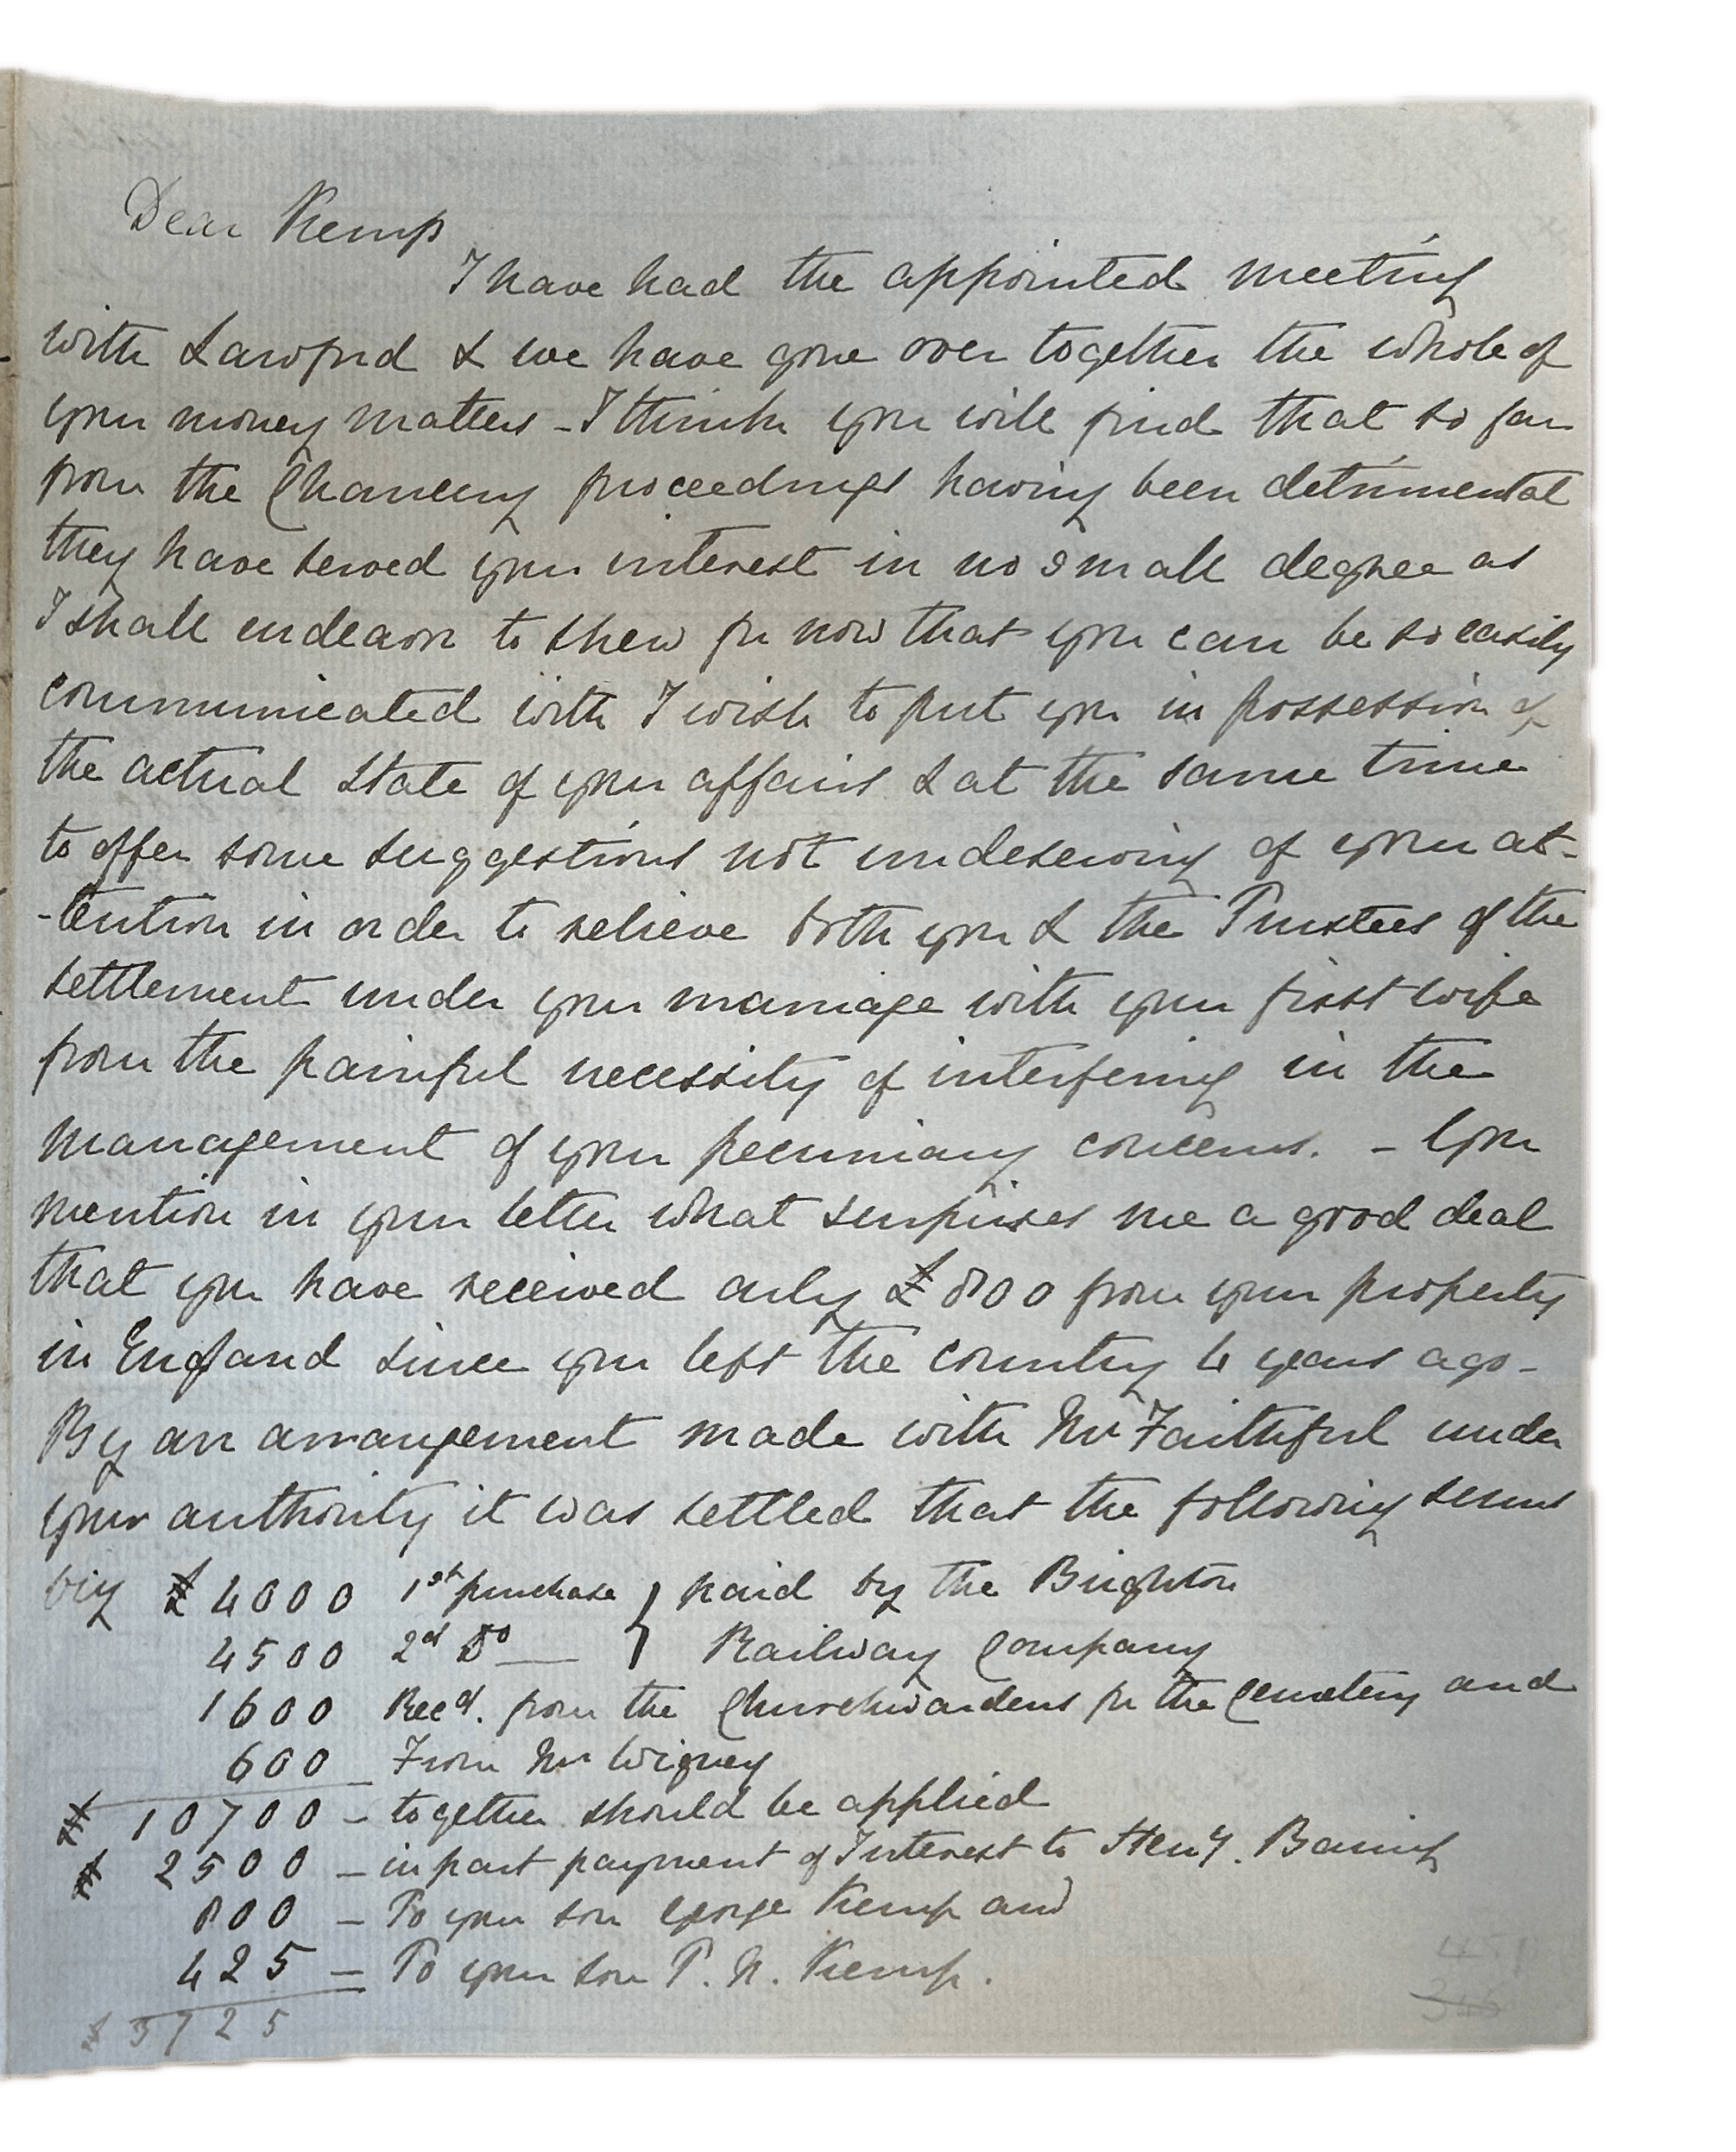 Dear Kemp
I have had the appointed meeting
with Lawford & we have gone over together the whole of
your money matters - I think you will find that so far
from the Chancery proceedings having been detrimental
they have served your interest in no small degree as
I shall endeavor to shew for now that you can be so easily
communicated with I wish to put you in possession of
the actual state of your affairs & at the same time
to offer some suggestions not undeserving of your at-
-tention in order to relieve both you & the Trustees of the
settlement under your marriage with your first wife
from the painful necessity of interfering in the
management of your pecuniary concerns. - You
mention in your letter what surprises me a good deal
that you have received only £800 from your property
in England since you left the country 4 years ago -
By an arrangement made with Mr Faithful under
your authority it was settled that the following sums
viz £4000 1st purchase } paid by the Brighton
4500 2d Do } Railway Company
1600 Recd. from the Churchwardens for the Cemetery and
600 From Mr Wigney
£ 10700 - together should be applied
£ 2500 - in part payment of Interest to Heny. Baring
800 - To your son George Kemp and
425 - To your son T. N. Kemp.
£ 3725
451
346